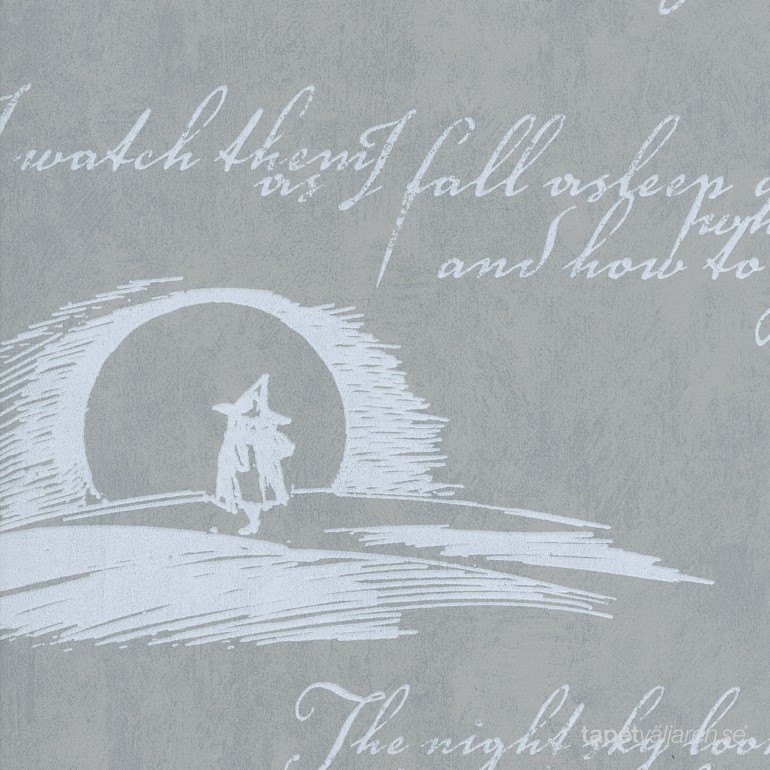 I watch them
as I fall asleep
and how to
The night sky loo
tapetväljaren.se